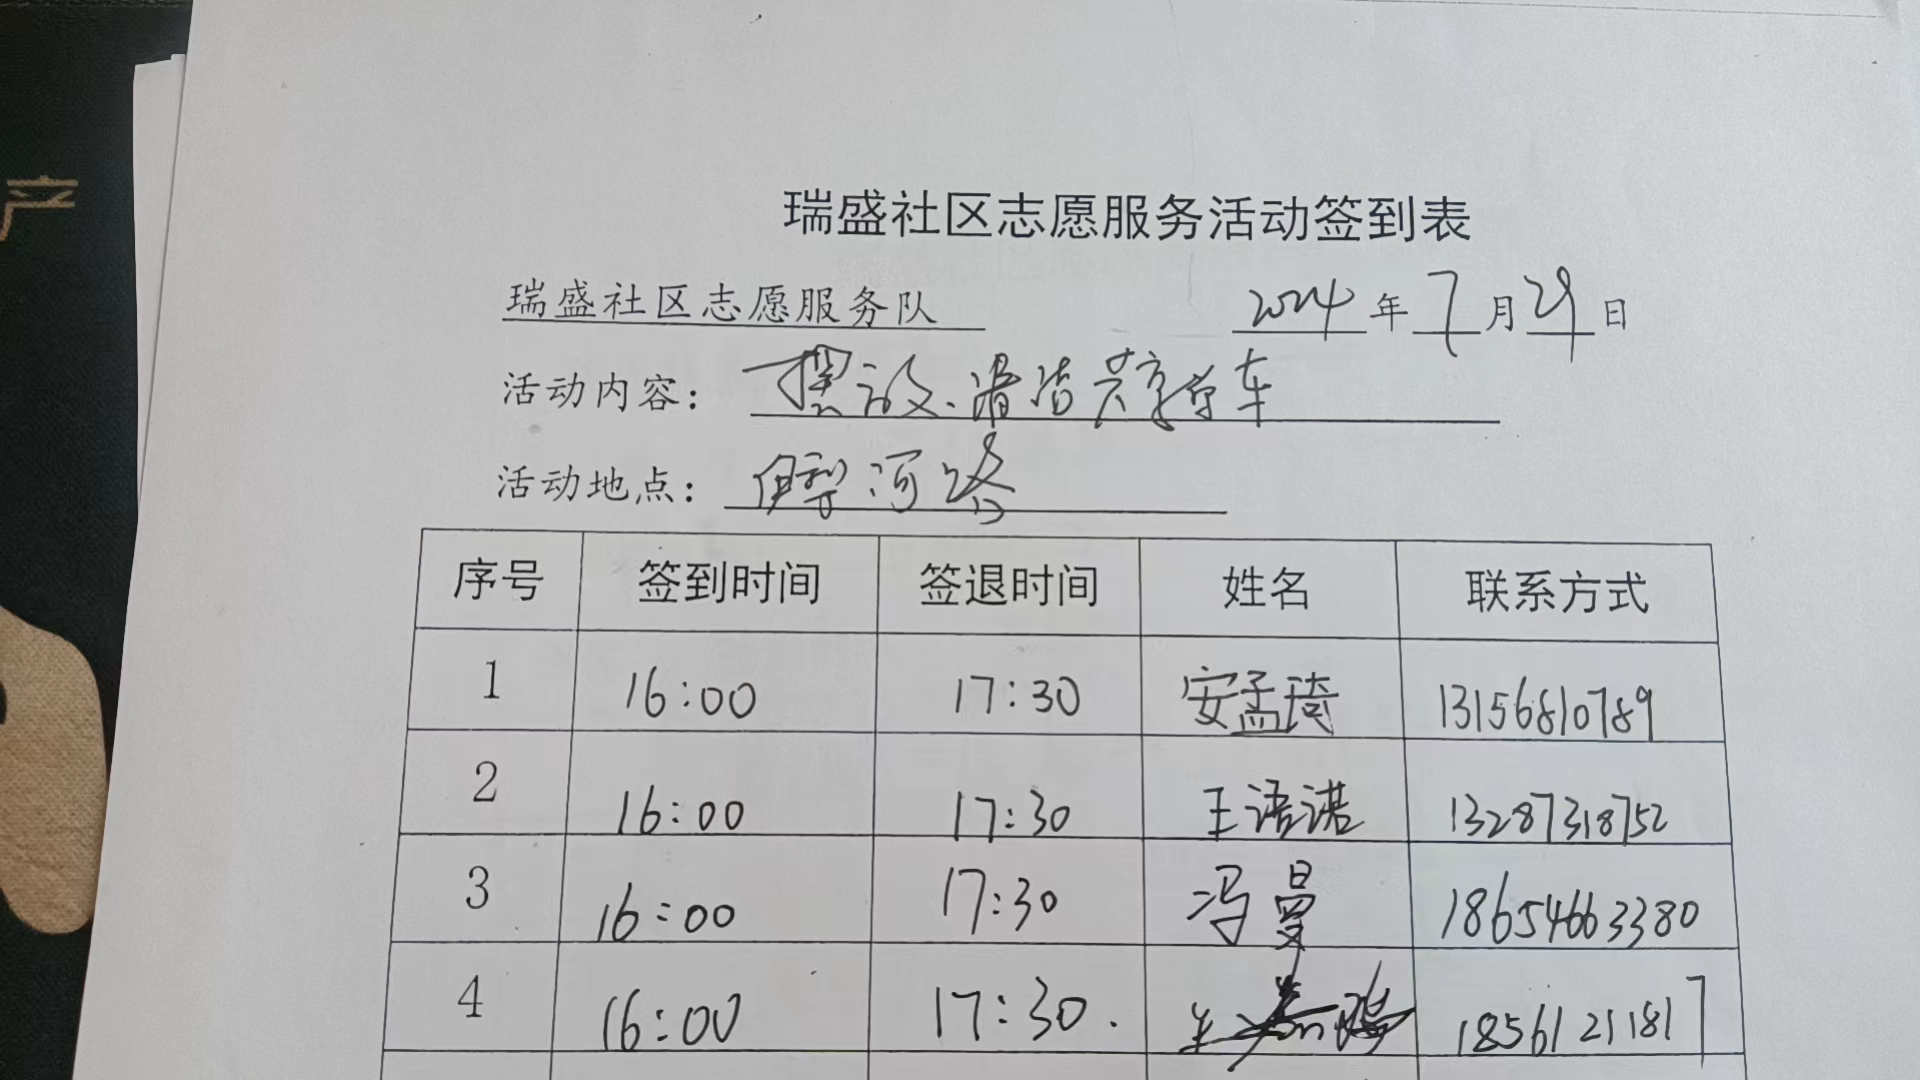 产
瑞盛社区志愿服务活动签到表
瑞盛社区志愿服务队 2024年7月29日
活动内容: 摆放、清洁共享单车
活动地点: 伊犁河路
序号 签到时间 签退时间 姓名 联系方式
1 16:00 17:30 安孟琦 13156810789
2 16:00 17:30 王语诺 13287318752
3 16:00 17:30 冯曼 18654663380
4 16:00 17:30. 18561211817